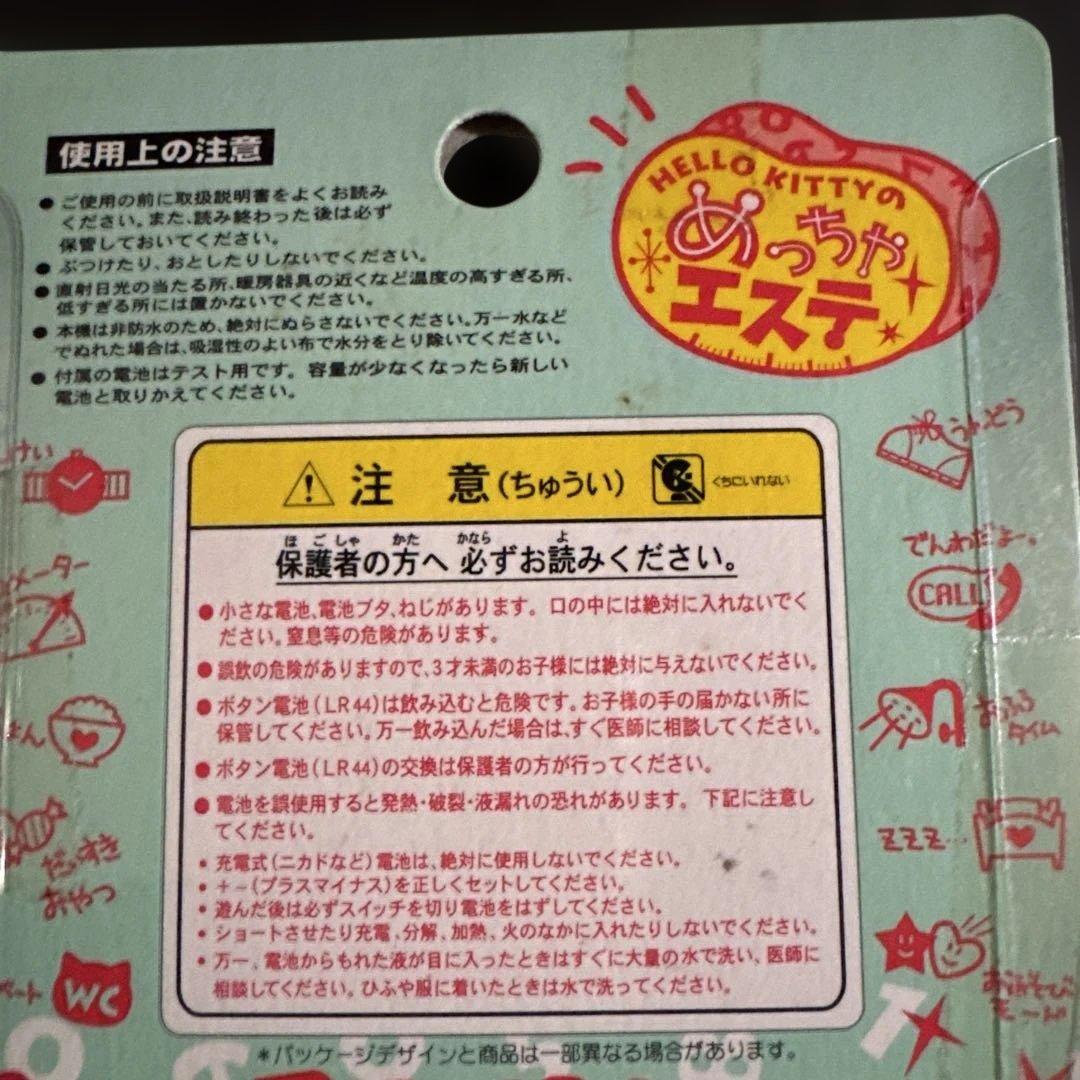 使用上の注意
● ご使用の前に取扱説明書をよくお読み
ください。また、読み終わった後は必ず
保管しておいてください。
● ぶつけたり、おとしたりしないでください。
● 直射日光の当たる所、暖房器具の近くなど温度の高すぎる所、
低すぎる所には置かないでください。
● 本機は非防水のため、絶対にぬらさないでください。万一水など
でぬれた場合は、吸湿性のよい布で水分をとり除いてください。
● 付属の電池はテスト用です。容量が少なくなったら新しい
電池と取りかえてください。
HELLO KITTYの
めっちゃ
エステ
注 意(ちゅうい)
くちにいれない
保護者の方へ 必ずお読みください。
ほごしゃ かた かなら よ
● 小さな電池、電池ブタ、ねじがあります。口の中には絶対に入れないでく
ださい。窒息等の危険があります。
● 誤飲の危険がありますので、3才未満のお子様には絶対に与えないでください。
● ボタン電池(LR44)は飲み込むと危険です。お子様の手の届かない所に
保管してください。万一飲み込んだ場合は、すぐ医師に相談してください。
● ボタン電池(LR44)の交換は保護者の方が行ってください。
● 電池を誤使用すると発熱・破裂・液漏れの恐れがあります。下記に注意し
てください。
・充電式(ニカドなど)電池は、絶対に使用しないでください。
・+-(プラスマイナス)を正しくセットしてください。
・遊んだ後は必ずスイッチを切り電池をはずしてください。
・ショートさせたり充電、分解、加熱、火のなかに入れたりしないでください。
・万一、電池からもれた液が目に入ったときはすぐに大量の水で洗い、医師に
相談してください。ひふや服に着いたときは水で洗ってください。
*パッケージデザインと商品は一部異なる場合があります。
けい
メーター
だいすき
おやつ
WC
うんどう
でんわだよー。
CALL
おふろ
タイム
ZZZ...